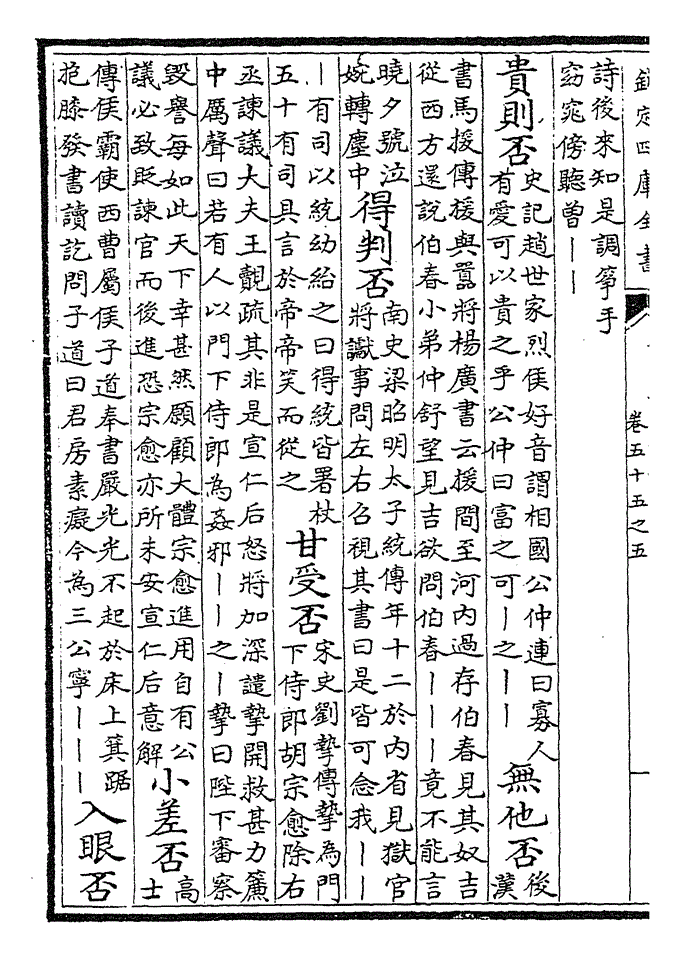 欽定四庫全書
卷五十五之五
詩後來知是調箏手
窈窕傍聽曾丨丨
貴則否
史記趙世家烈侯好音謂相國公仲連曰寡人
有愛可以貴之乎公仲曰富之可丨之丨丨
無他否
後
漢
書馬援傳援與囂將楊廣書云援間至河內過存伯春見其奴吉
從西方還說伯春小弟仲舒望見吉欲問伯春丨丨丨竟不能言
曉夕號泣
婉轉塵中
得判否
南史梁昭明太子統傳年十二於內省見獄官
將讞事問左右召視其書曰是皆可念我丨丨
丨有司以統幼紿之曰得統皆署杖
五十有司具言於帝帝笑而從之
甘受否
宋史劉摯傳摯為門
下侍郎胡宗愈除右
丞諫議大夫王覿疏其非是宣仁后怒將加深譴摯開救甚力簾
中厲聲曰若有人以門下侍郎為姦邪丨丨之丨摯曰陛下審察
毀譽每如此天下幸甚然願顧大體宗愈進用自有公
議必致貶諫官而後進恐宗愈亦所未安宣仁后意解
小差否
高
士
傳侯霸使西曹屬侯子道奉書嚴光光不起於床上箕踞
抱膝發書讀訖問子道曰君房素癡今為三公寧丨丨丨
入眼否